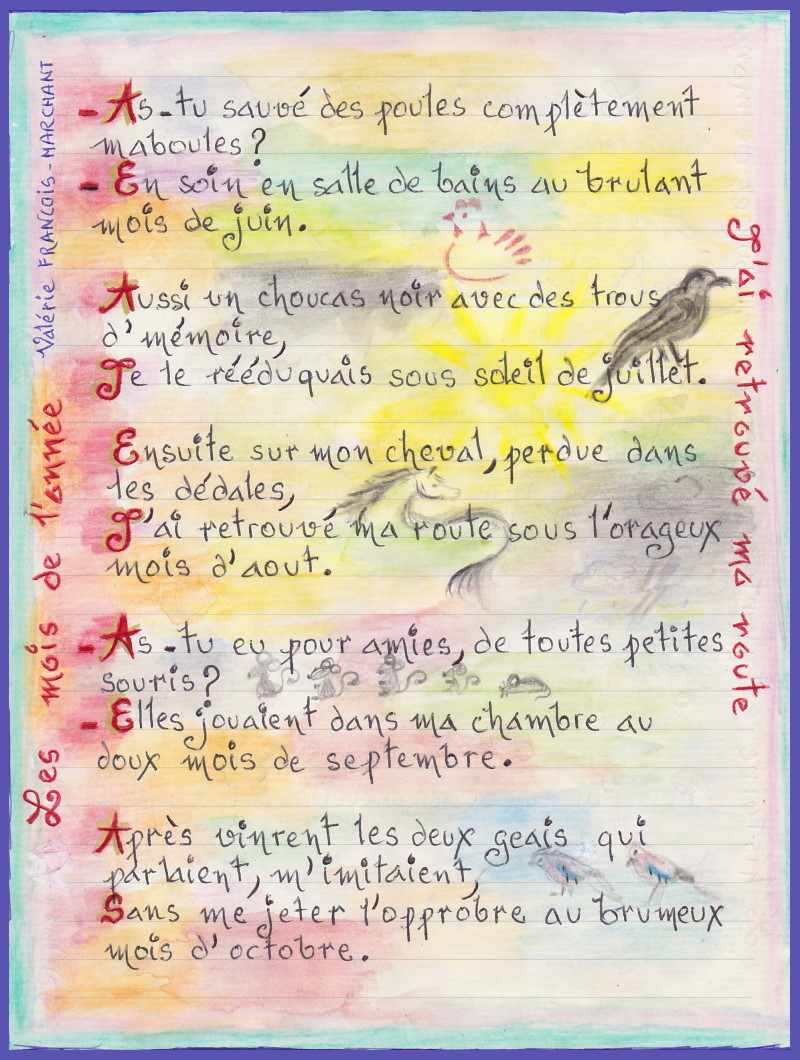 Valérie FRANCOIS-MARCHANT
Les mois de l'année
- As-tu sauvé des poules complètement
maboules?
- En soin en salle de bains au brulant
mois de juin.
Aussi un choucas noir avec des trous
d'mémoire,
Je le rééduquais sous soleil de juillet.
Ensuite sur mon cheval, perdue dans
les dédales,
J'ai retrouvé ma route sous l'orageux
mois d'aout.
- As-tu eu pour amies, de toutes petites
souris?
- Elles jouaient dans ma chambre au
doux mois de septembre.
Après vinrent les deux geais qui
parlaient, m'imitaient,
Sans me jeter l'opprobre au brumeux
mois d'octobre.
J'ai retrouvé ma route